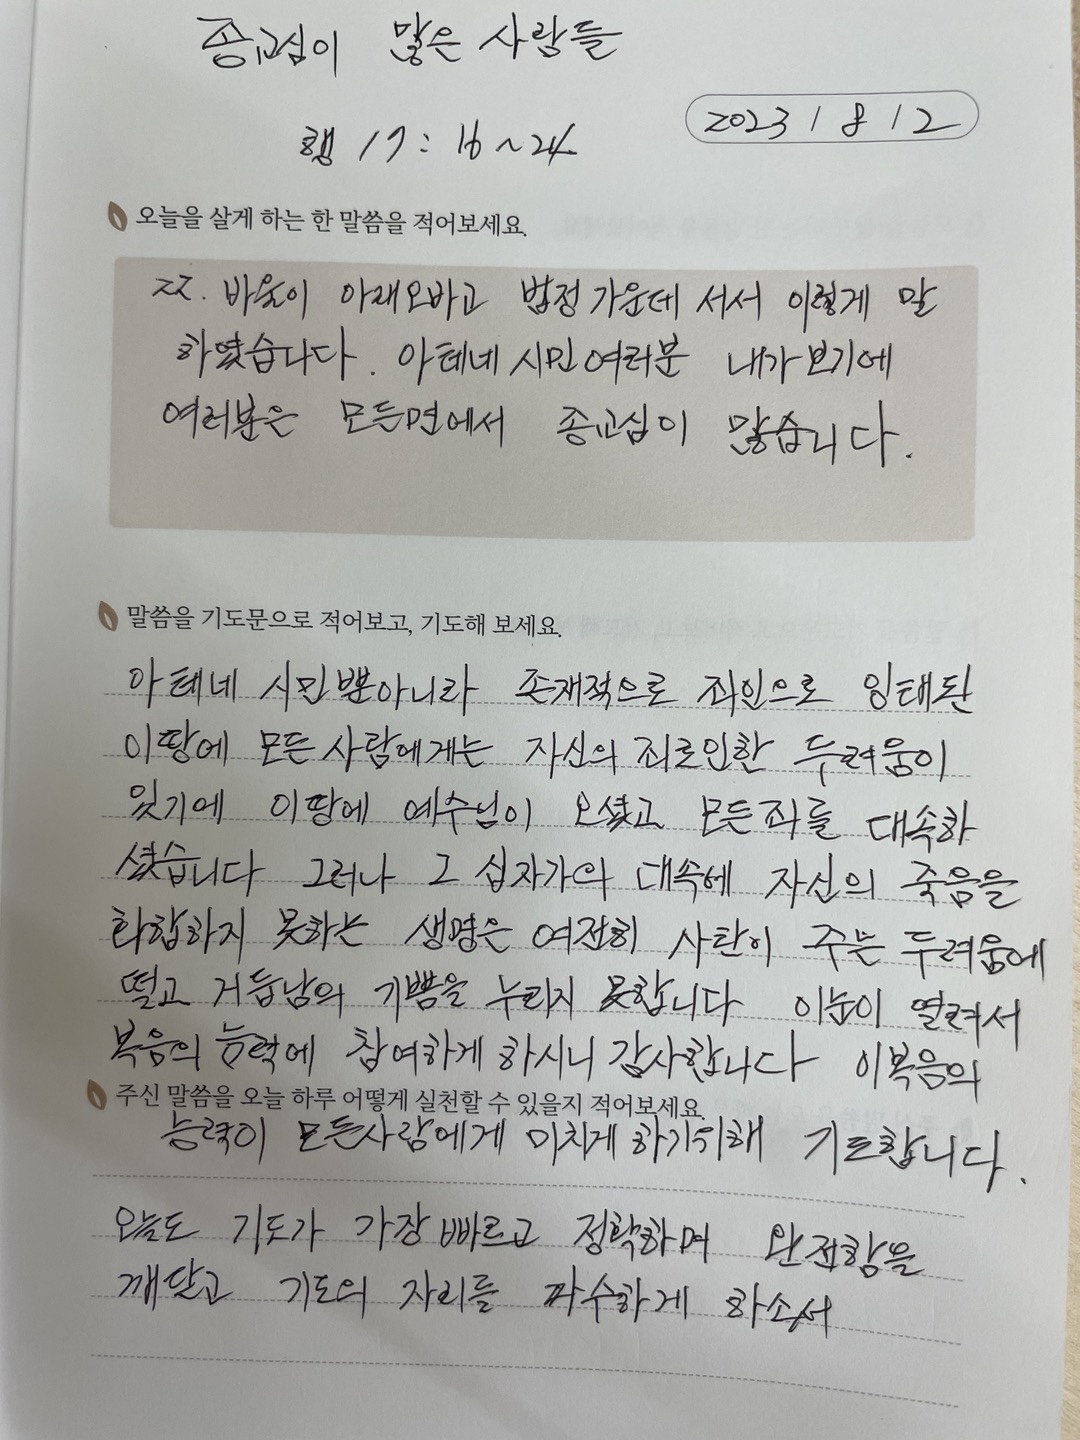 종교심이 많은 사람들
행 17 : 16 ~ 24
2023 / 8 / 2
오늘을 살게 하는 한 말씀을 적어보세요.
22. 바울이 아래오바고 법정 가운데 서서 이렇게 말
하였습니다. 아테네 시민 여러분 내가 보기에
여러분은 모든면에서 종교심이 많습니다.
말씀을 기도문으로 적어보고, 기도해 보세요.
아테네 시민뿐아니라 존재적으로 죄인으로 잉태된
이땅에 모든 사람에게는 자신의 죄로인한 두려움이
있기에 이땅에 예수님이 오셨고 모든죄를 대속하
셨습니다 그러나 그 십자가의 대속에 자신의 죽음을
화합하지 못하는 생명은 여전히 사탄이 주는 두려움에
떨고 거듭남의 기쁨을 누리지 못합니다 이눈이 열려서
복음의 능력에 참여하게 하시니 감사합니다 이복음의
주신 말씀을 오늘 하루 어떻게 실천할 수 있을지 적어보세요.
능력이 모든사람에게 미치게 하기위해 기도합니다.
오늘도 기도가 가장 빠르고 정확하며 완전함을
깨닫고 기도의 자리를 파수하게 하소서